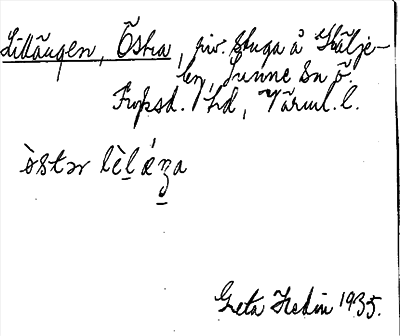 Lillängen, Östra, priv. stuga å Hälje-
len, Sunne sn ö.
Fryksd. hd, Värml. l.
östər lèl̠ǽʒ̠a
Greta Hedin 1935.